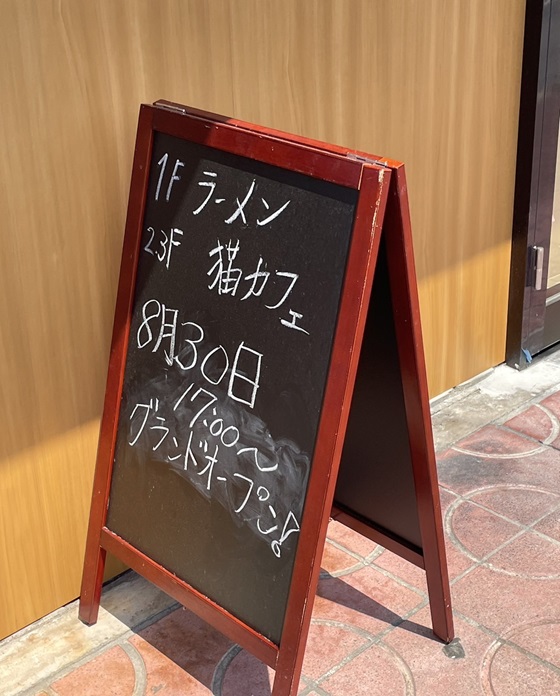 1F ラーメン
2.3F 猫カフェ
8月30日
17:00〜
グランドオープン!